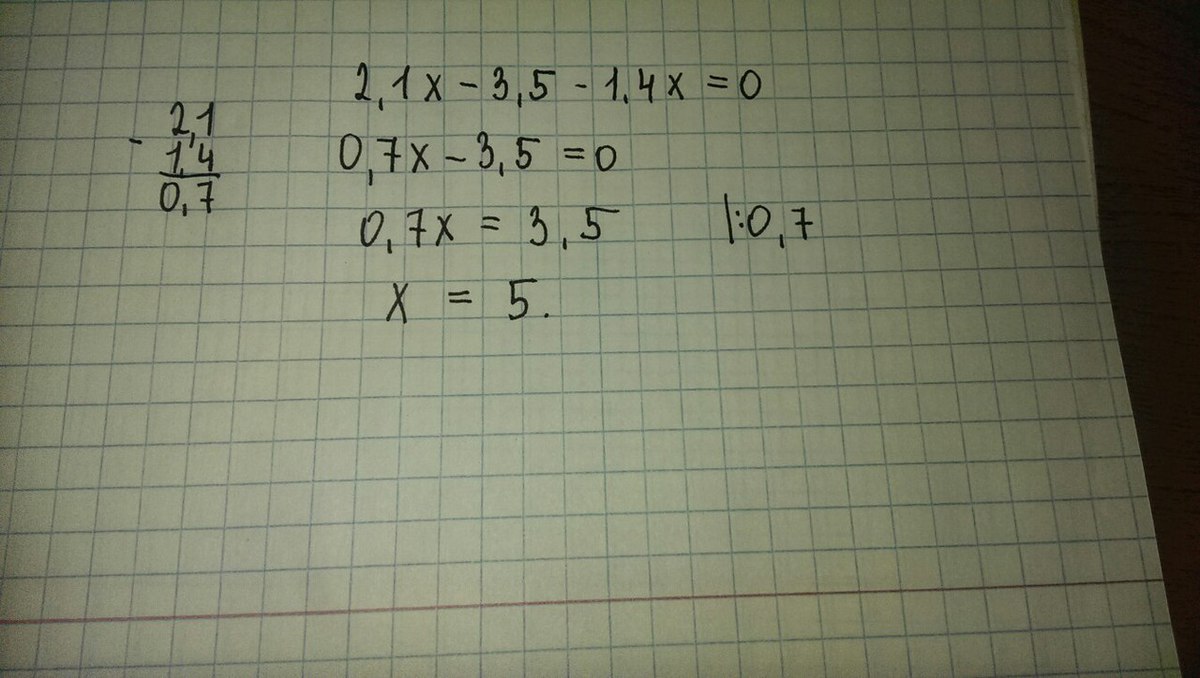 2,1x - 3,5 - 1,4x = 0
- 2,1
1,4
0,7
0,7x - 3,5 = 0
0,7x = 3,5 |:0,7
x = 5.